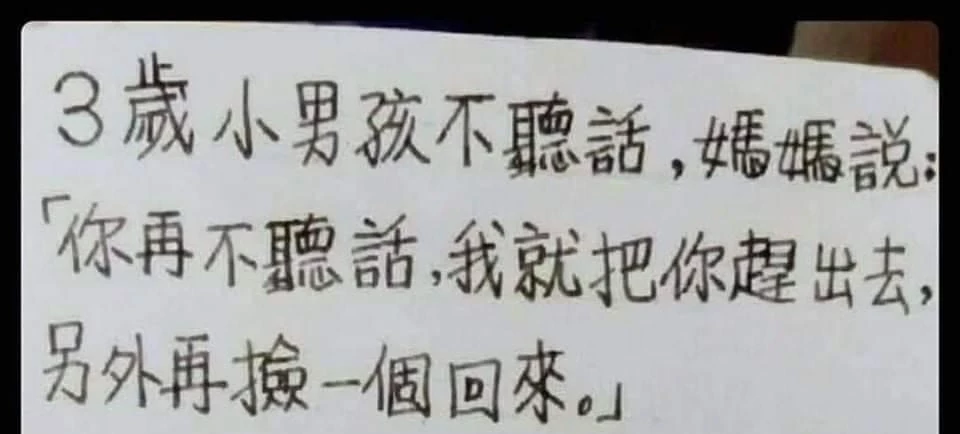 3歲小男孩不聽話,媽媽説:
「你再不聽話,我就把你趕出去,
另外再撿一個回來。」